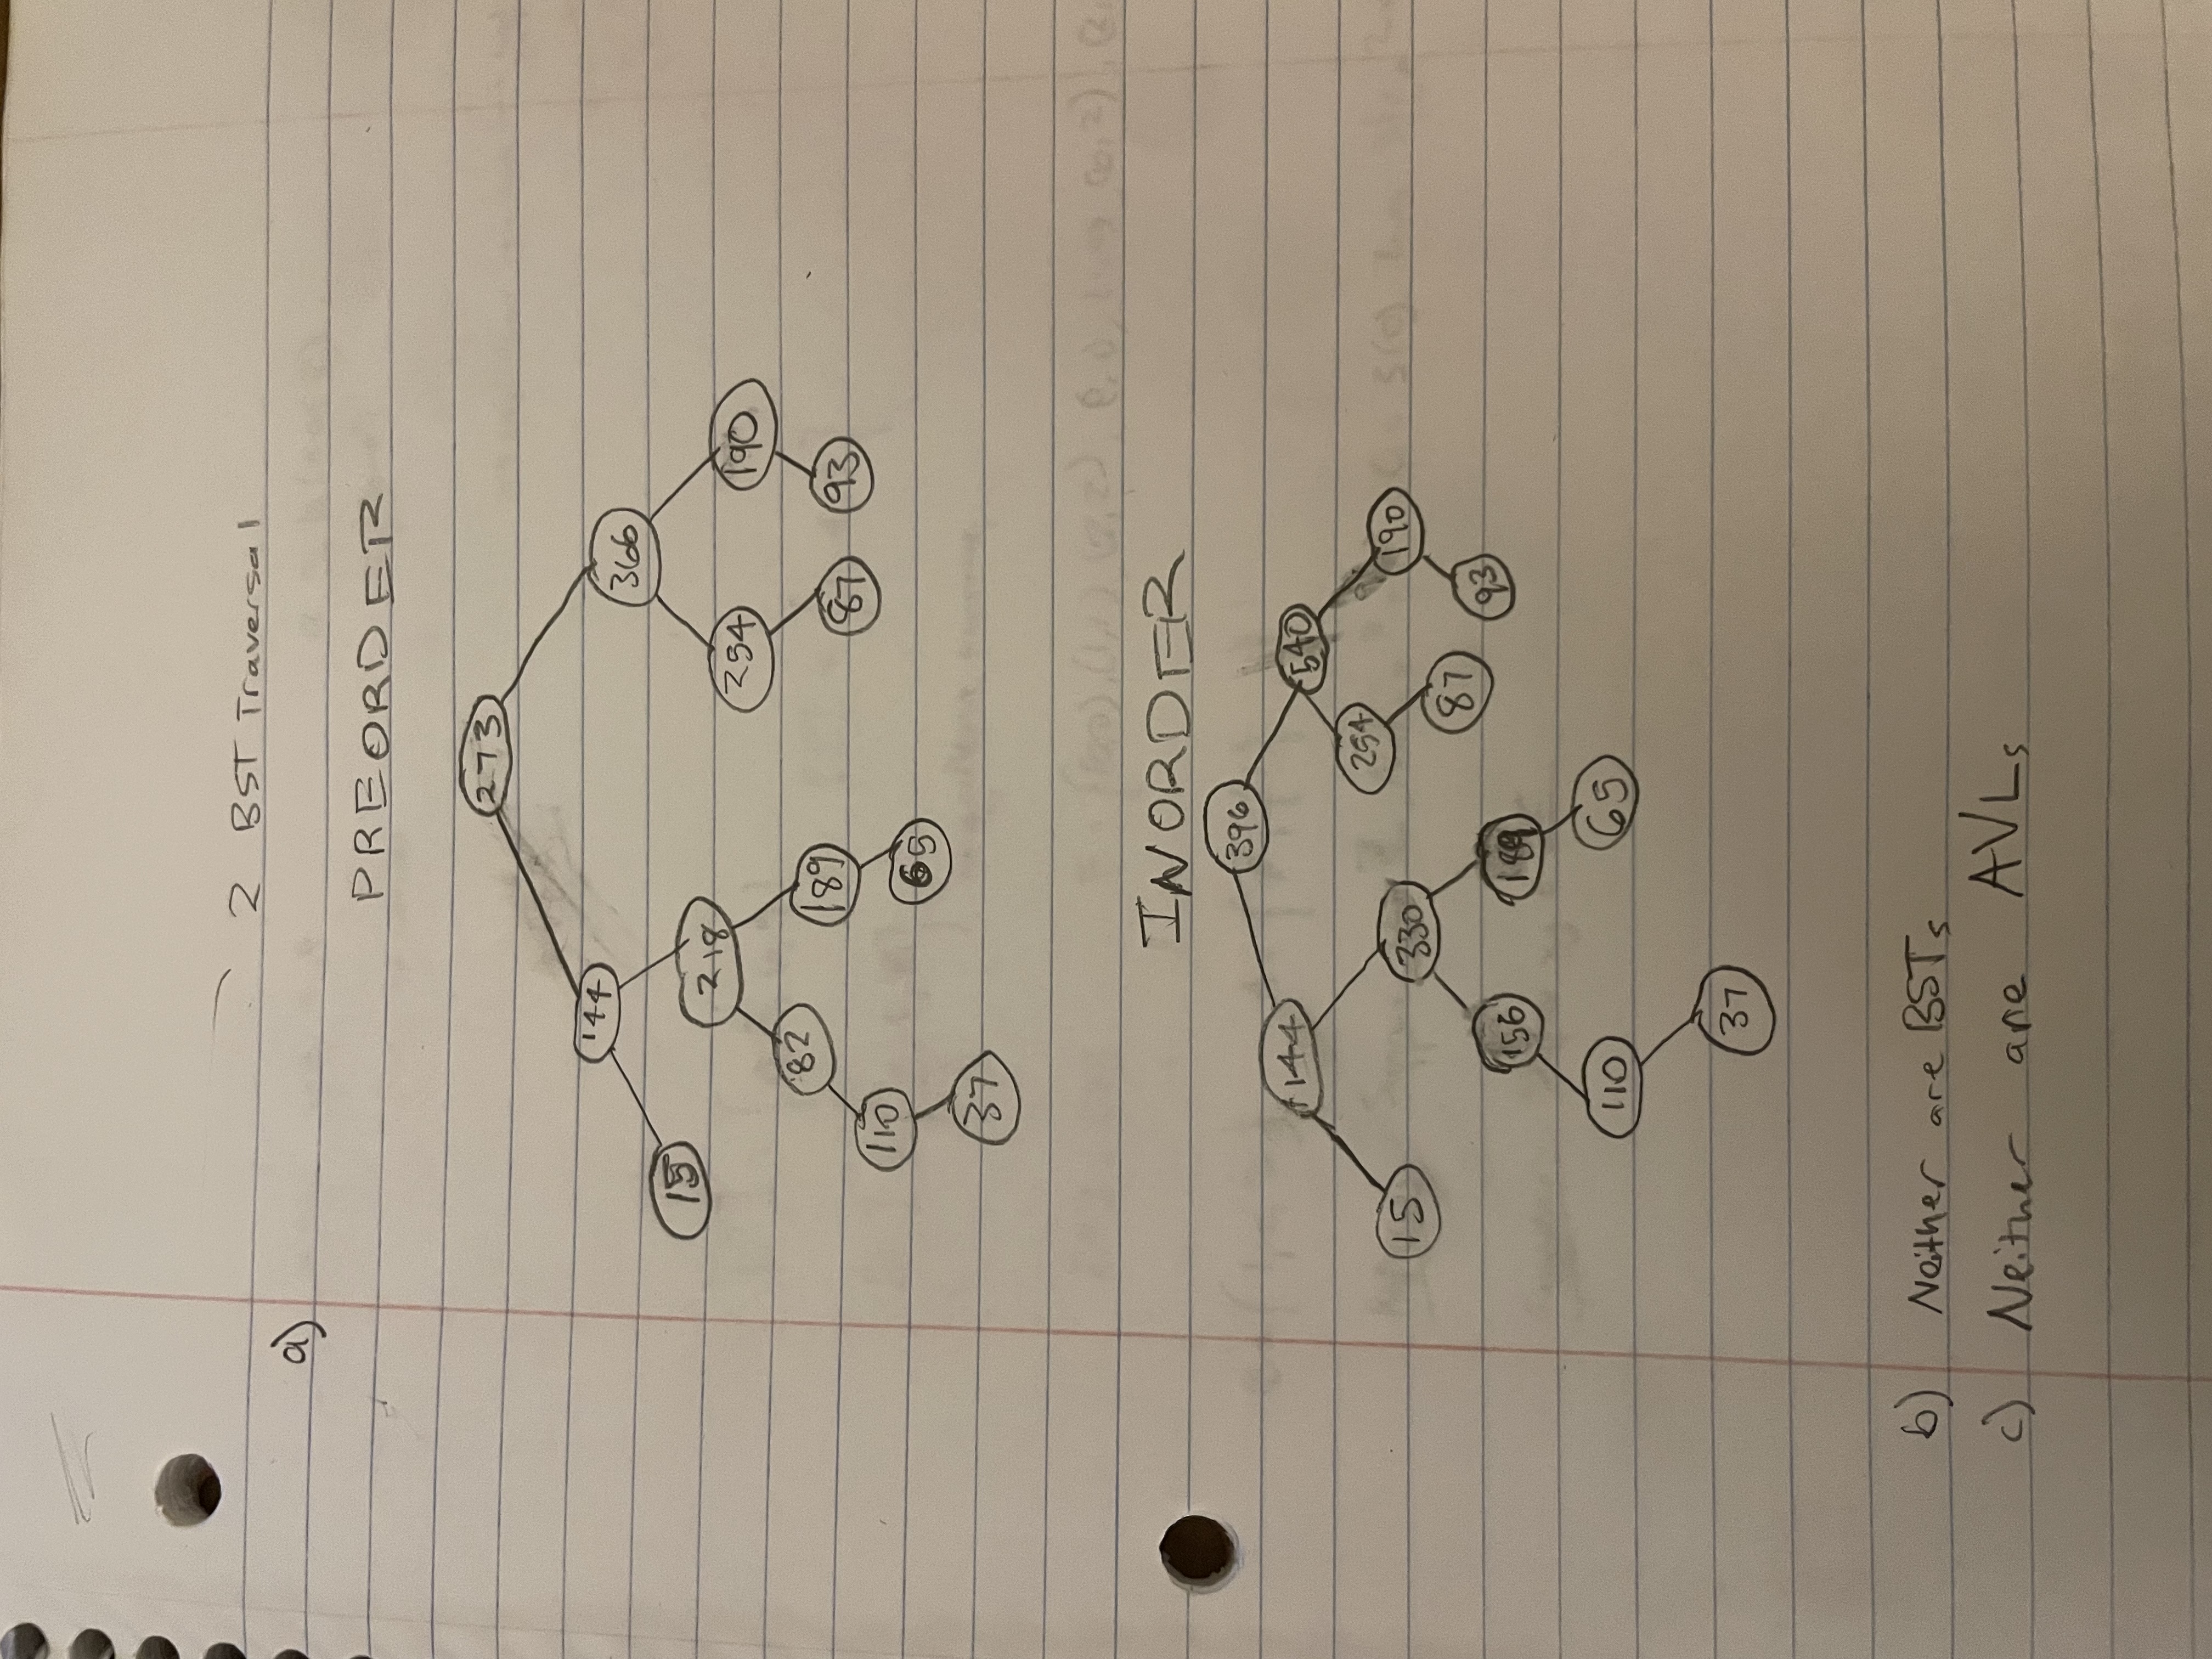 2 BST Traversal
a)
PREORDER
273
144
366
15
218
254
190
82
189
87
93
110
65
37
INORDER
396
144
540
254
190
15
330
87
93
156
189
110
65
37
b) Neither are BSTs
c) Neither are AVLs